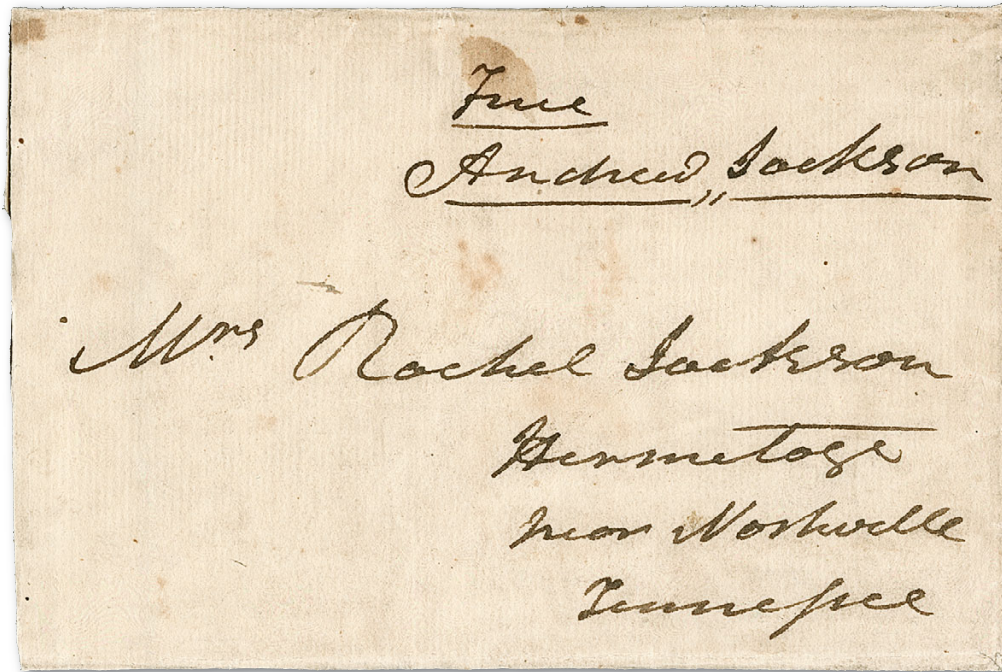 Free
Andrew, Jackson
Mrs Rachel Jackson
Hermitage
near Nashville
Tennessee